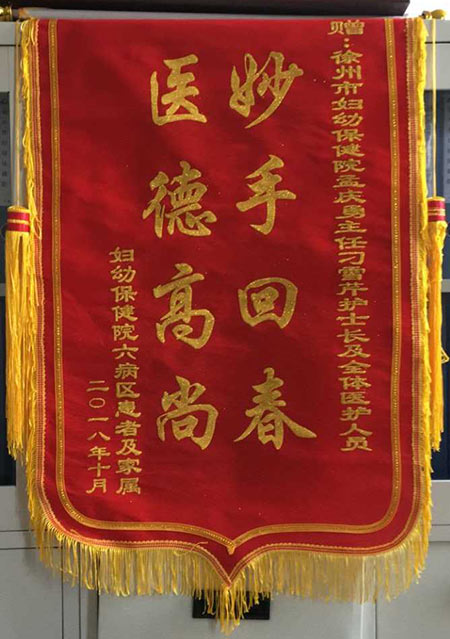 赠:徐州市妇幼保健院孟庆勇主任刁雪芹护士长及全体医护人员
妙手回春
医德高尚
妇幼保健院六病区患者及家属
二〇一八年十月